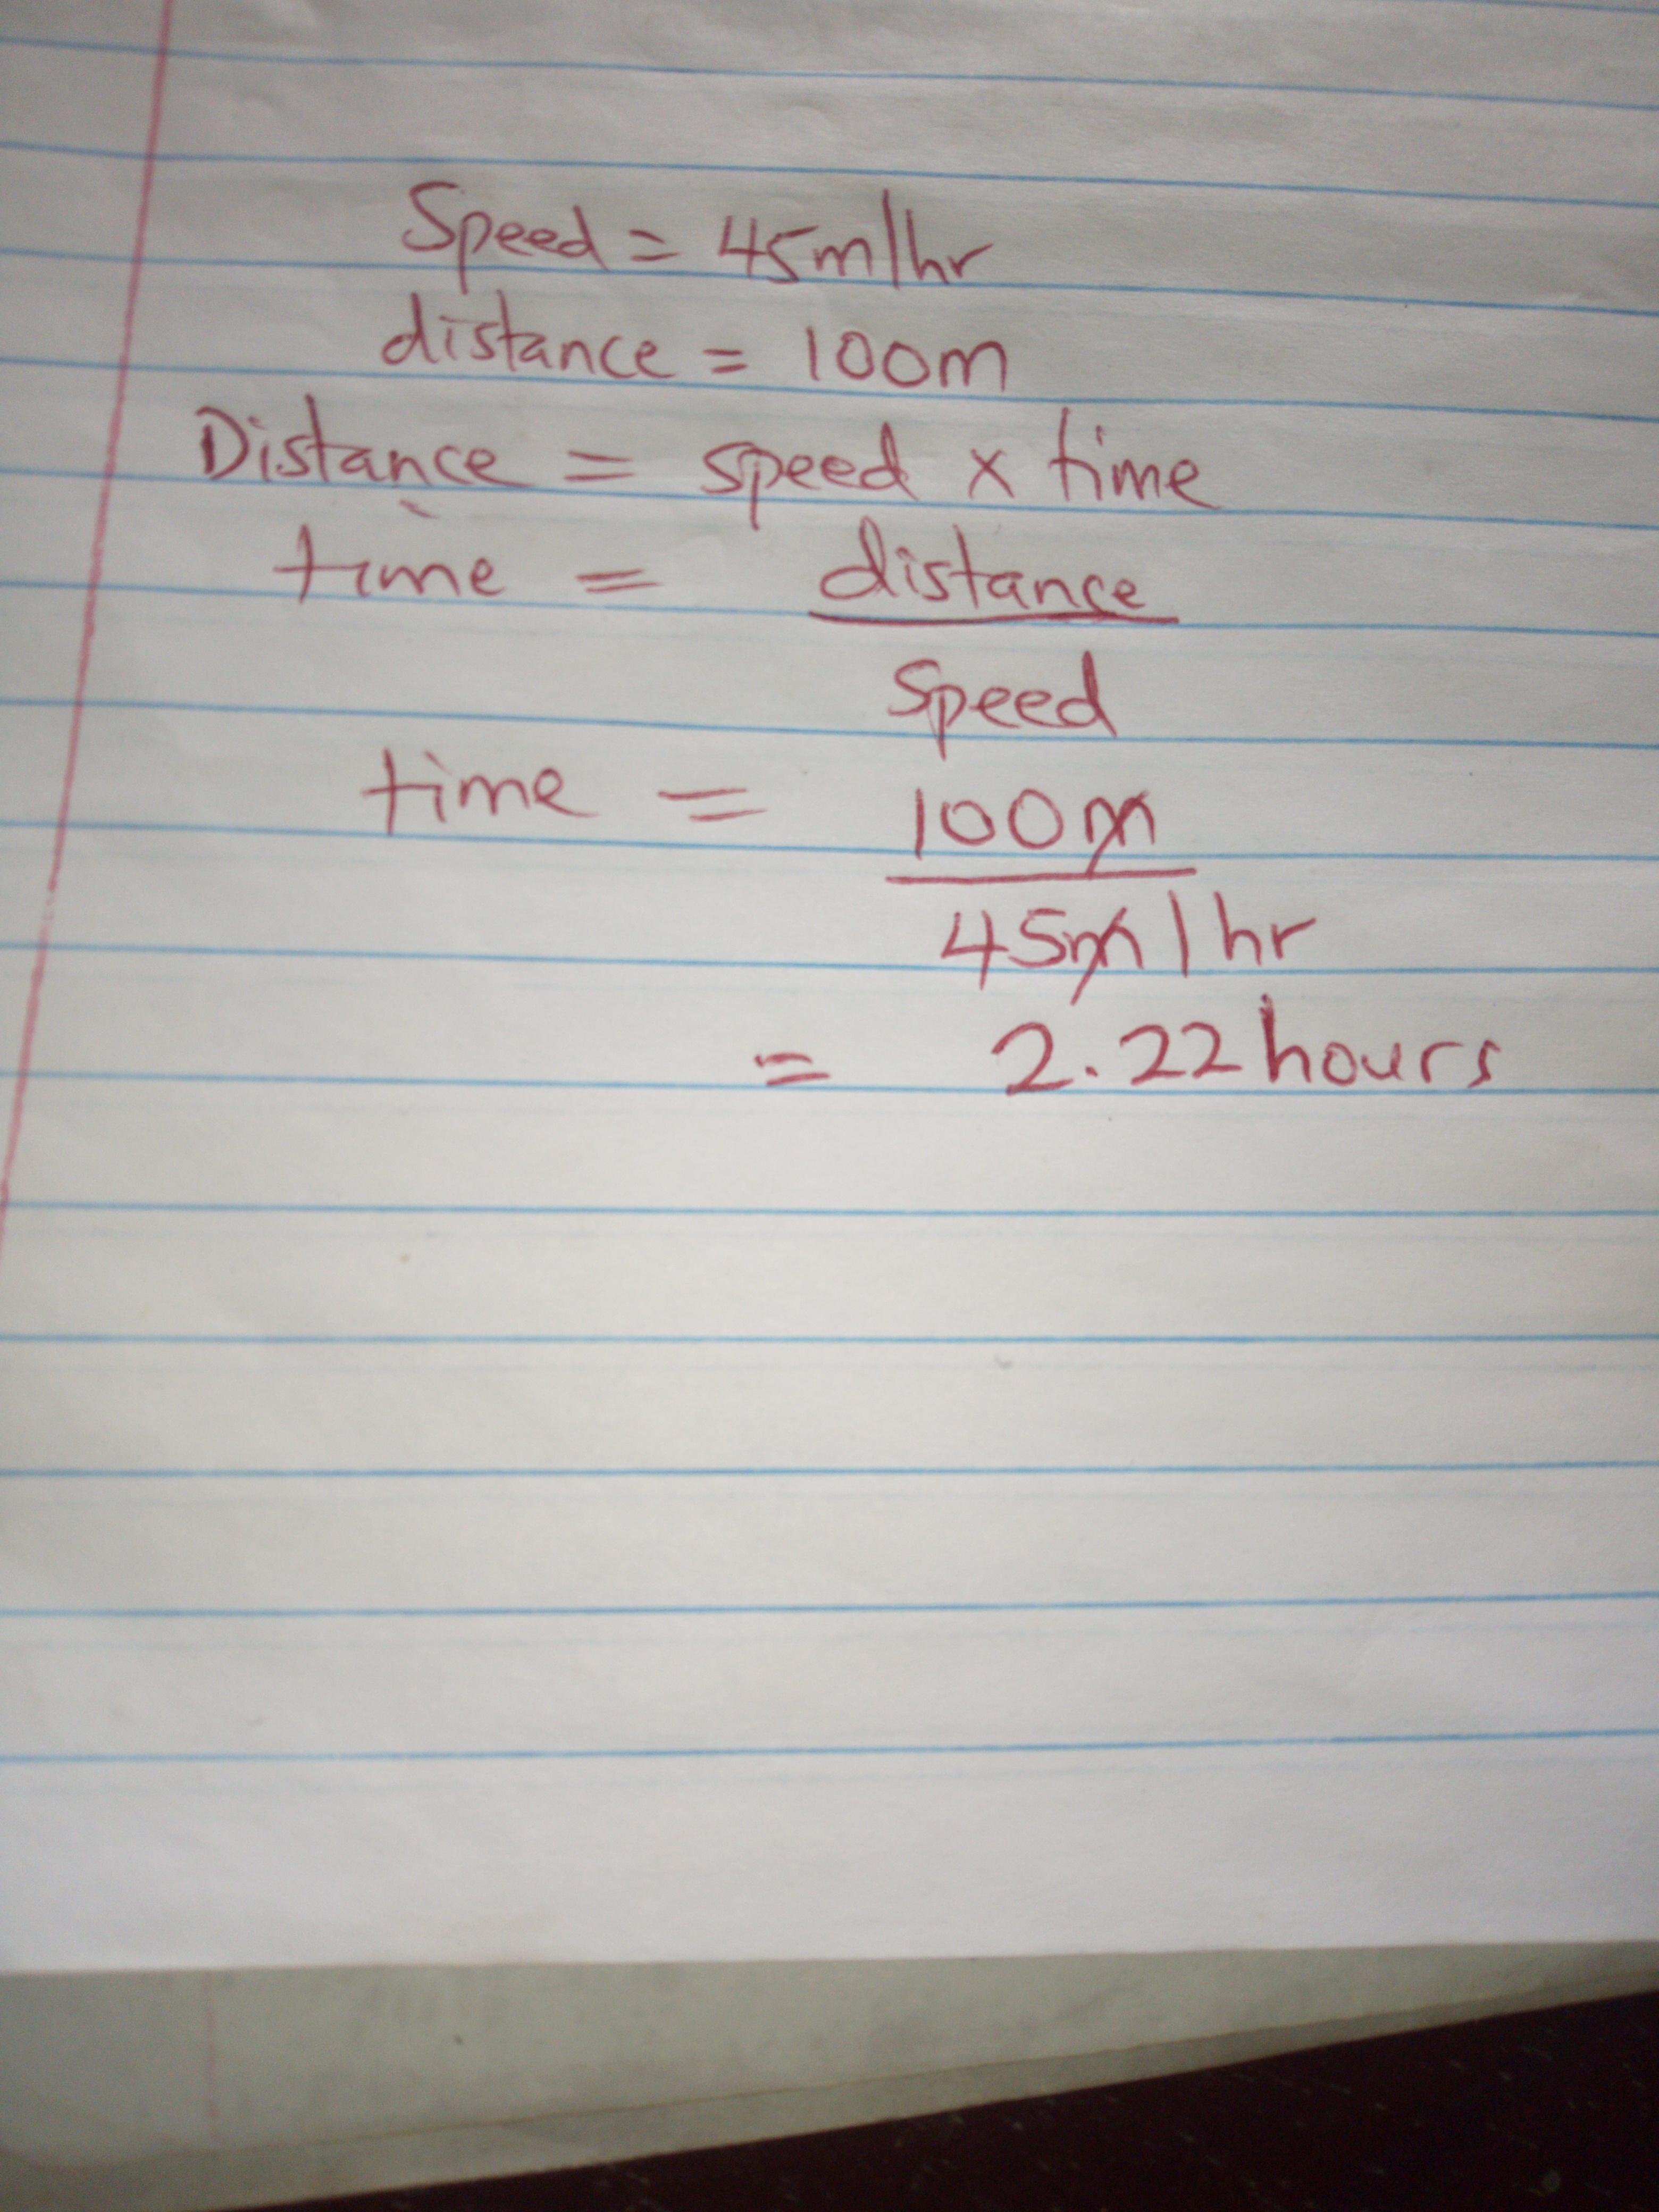 Speed = 45m/hr
distance = 100m
Distance = speed x time
time = distance
Speed
time = 100m
45m/hr
= 2.22hours